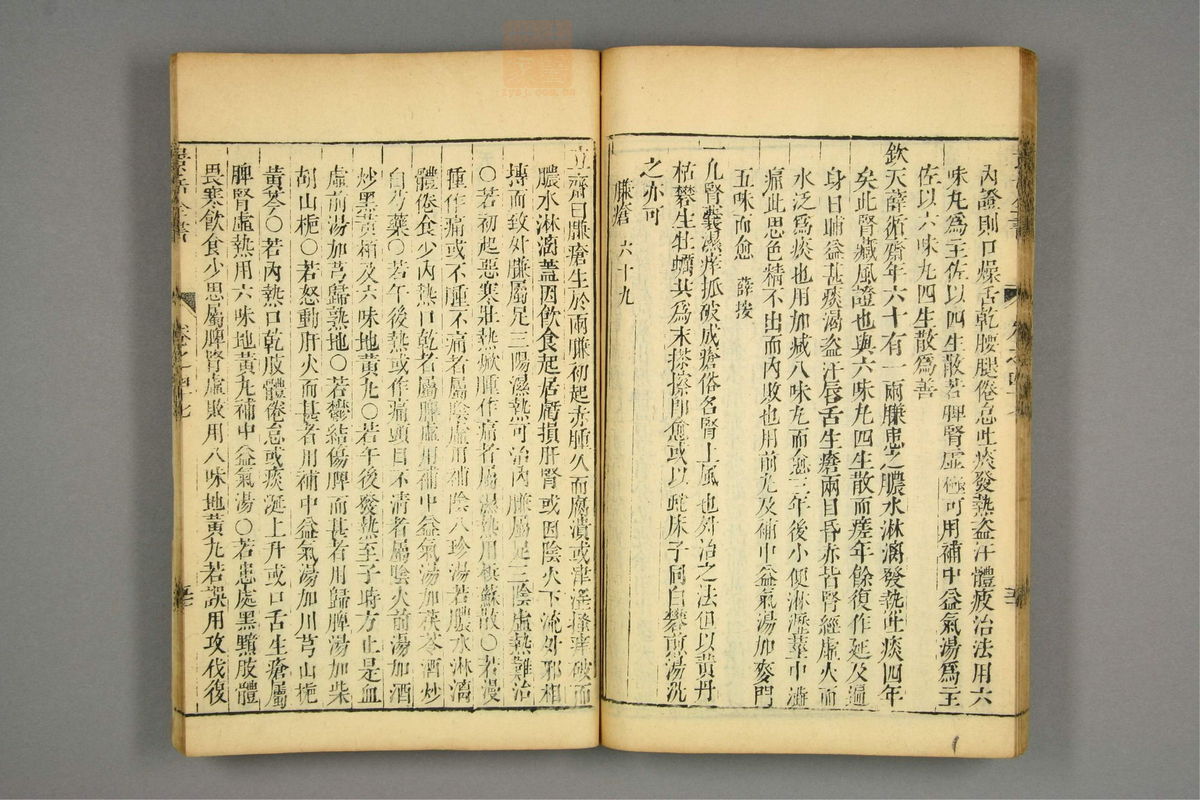 內證則口燥舌乾腰腿倦怠吐痰發熱盜汗體疲治法用六
味丸為主佐以四生散若脾腎虛極可用補中益氣湯爲主
佐以六味丸四生散爲善
欽天薛循齋年六十有一兩臁患之膿水淋漓發熱吐痰四年
矣此腎藏風證也與六味丸四生散而瘥年餘復作延及遍
身日晡益甚痰渴盜汗唇舌生瘡兩目昏赤皆腎經虛火而
水泛爲痰也用加减八味丸而愈三年後小便淋瀝莖中澁
痛此思色精不出而內敗也用前丸及補中益氣湯加麥門
五味而愈 薛按
一凡腎囊濕癢抓破成瘡俗名腎上風也外治之法但以黃丹
枯礬生牡蠣共爲末搽擦即愈或以蛇床子同白礬煎湯洗
之亦可
臁瘡 六十九
立齋曰臁瘡生於兩臁初起赤腫久而腐潰或津淫搔癢破而
膿水淋漓蓋因飲食起居虧損肝腎或因陰火下流外邪相
摶而致外臁屬足三陽濕熱可治內臁屬足三陰虛熱難治
○若初起惡寒壯熱焮腫作痛者屬濕熱用檳蘇散○若漫
腫作痛或不腫不痛者屬陰虛用補陰八珍湯若膿水淋漓
體倦食少內熱口乾者屬脾虛用補中益氣湯加茯苓酒炒
白芍藥○若午後熱或作痛頭目不清者屬陰火前湯加酒
炒黑黃栢及六味地黃丸○若午後發熱至子時方止是血
虛前湯加芎歸熟地○若鬱結傷脾而甚者用歸脾湯加柴
胡山梔○若怒動肝火而甚者用補中益氣湯加川芎山梔
黃芩○若內熱口乾肢體倦怠或痰涎上升或口舌生瘡屬
脾腎虛熱用六味地黃丸補中益氣湯○若患處黑黯肢體
畏寒飲食少思屬脾腎虛敗用八味地黃丸若誤用攻伐復